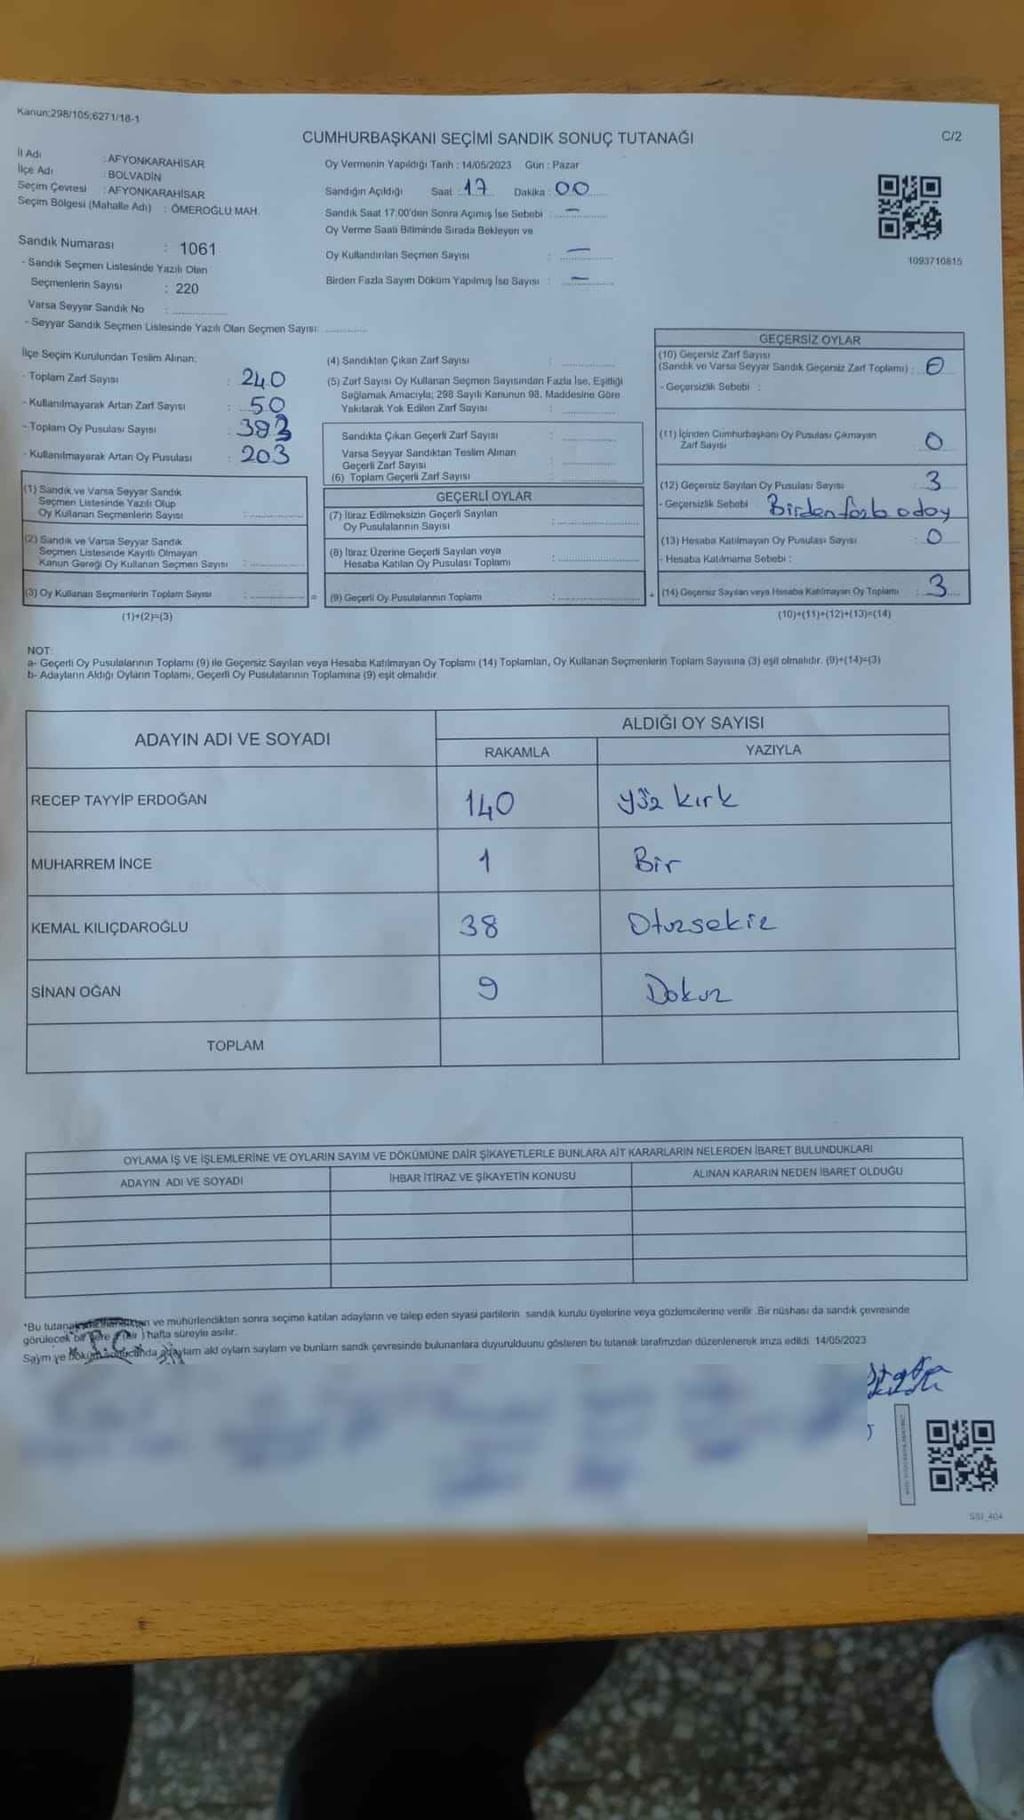 Kanun:298/105;6271/18-1
CUMHURBAŞKANI SEÇİMİ SANDIK SONUÇ TUTANAĞI
C/2
İl Adı : AFYONKARAHİSAR
İlçe Adı : BOLVADİN
Seçim Çevresi : AFYONKARAHİSAR
Seçim Bölgesi (Mahalle Adı) : ÖMEROĞLU MAH.
Oy Vermenin Yapıldığı Tarih : 14/05/2023 Gün : Pazar
Sandığın Açıldığı Saat : 17 Dakika : 00
Sandık Saat 17:00'den Sonra Açımış İse Sebebi : –
Oy Verme Saati Bitiminde Sırada Bekleyen ve
Oy Kullandırılan Seçmen Sayısı : –
Birden Fazla Sayım Döküm Yapılmış İse Sayısı : –
1093710815
Sandık Numarası : 1061
- Sandık Seçmen Listesinde Yazılı Olan
Seçmenlerin Sayısı : 220
Varsa Seyyar Sandık No :
- Seyyar Sandık Seçmen Listesinde Yazılı Olan Seçmen Sayısı:
İlçe Seçim Kurulundan Teslim Alınan:
- Toplam Zarf Sayısı : 240
- Kullanılmayarak Artan Zarf Sayısı : 50
- Toplam Oy Pusulası Sayısı : 393
- Kullanılmayarak Artan Oy Pusulası : 203
(1) Sandık ve Varsa Seyyar Sandık
Seçmen Listesinde Yazılı Olup
Oy Kullanan Seçmenlerin Sayısı :
(2) Sandık ve Varsa Seyyar Sandık
Seçmen Listesinde Kayıtlı Olmayan
Kanun Gereği Oy Kullanan Seçmen Sayısı :
(3) Oy Kullanan Seçmenlerin Toplam Sayısı : =
(1)+(2)=(3)
(4) Sandıktan Çıkan Zarf Sayısı :
(5) Zarf Sayısı Oy Kullanan Seçmen Sayısından Fazla İse, Eşitliği
Sağlamak Amacıyla; 298 Sayılı Kanunun 98. Maddesine Göre
Yakılarak Yok Edilen Zarf Sayısı :
Sandıkta Çıkan Geçerli Zarf Sayısı :
Varsa Seyyar Sandıktan Teslim Alınan
Geçerli Zarf Sayısı :
(6) Toplam Geçerli Zarf Sayısı :
GEÇERLİ OYLAR
(7) İtiraz Edilmeksizin Geçerli Sayılan
Oy Pusulalarının Sayısı :
(8) İtiraz Üzerine Geçerli Sayılan veya
Hesaba Katılan Oy Pusulası Toplamı :
(9) Geçerli Oy Pusulalarının Toplamı : +
GEÇERSİZ OYLAR
(10) Geçersiz Zarf Sayısı
(Sandık ve Varsa Seyyar Sandık Geçersiz Zarf Toplamı) : 0
- Geçersizlik Sebebi :
(11) İçinden Cumhurbaşkanı Oy Pusulası Çıkmayan
Zarf Sayısı 0
(12) Geçersiz Sayılan Oy Pusulası Sayısı : 3
- Geçersizlik Sebebi Birden fazla aday
(13) Hesaba Katılmayan Oy Pusulası Sayısı : 0
- Hesaba Katılmama Sebebi :
(14) Geçersiz Sayılan veya Hesaba Katılmayan Oy Toplamı : 3
(10)+(11)+(12)+(13)=(14)
NOT:
a- Geçerli Oy Pusulalarının Toplamı (9) ile Geçersiz Sayılan veya Hesaba Katılmayan Oy Toplamı (14) Toplamları, Oy Kullanan Seçmenlerin Toplam Sayısına (3) eşit olmalıdır. (9)+(14)=(3)
b- Adayların Aldığı Oyların Toplamı, Geçerli Oy Pusulalarının Toplamına (9) eşit olmalıdır.
ADAYIN ADI VE SOYADI
ALDIĞI OY SAYISI
RAKAMLA
YAZIYLA
RECEP TAYYİP ERDOĞAN 140 yüz kırk
MUHARREM İNCE 1 Bir
KEMAL KILIÇDAROĞLU 38 Otuzsekiz
SİNAN OĞAN 9 Dokuz
TOPLAM
OYLAMA İŞ VE İŞLEMLERİNE VE OYLARIN SAYIM VE DÖKÜMÜNE DAİR ŞİKAYETLERLE BUNLARA AİT KARARLARIN NELERDEN İBARET BULUNDUKLARI
ADAYIN ADI VE SOYADI
İHBAR İTİRAZ VE ŞİKAYETİN KONUSU
ALINAN KARARIN NEDEN İBARET OLDUĞU
*Bu ve mühürlendikten sonra seçime katılan adayların ve talep eden siyasi partilerin sandık kurulu üyelerine veya gözlemcilerine verilir. Bir nüshası da sandık çevresinde
görülecek bir hafta süreyle asılır.
Sayım ve ald oylarn saylarn ve bunlarn sandk çevresinde bulunanlara duyurulduunu gösteren bu tutanak tarafmzdan düzenlenerek imza edildi. 14/05/2023
T.C.
SSI_404